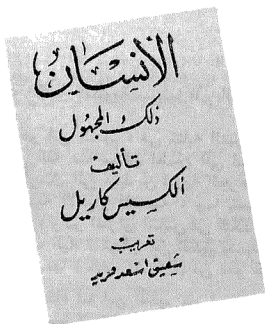 الإنسان
ذلك المجهول
تأليف
ألكسيس كاريل
تعريب
شفيق أسعد فريد